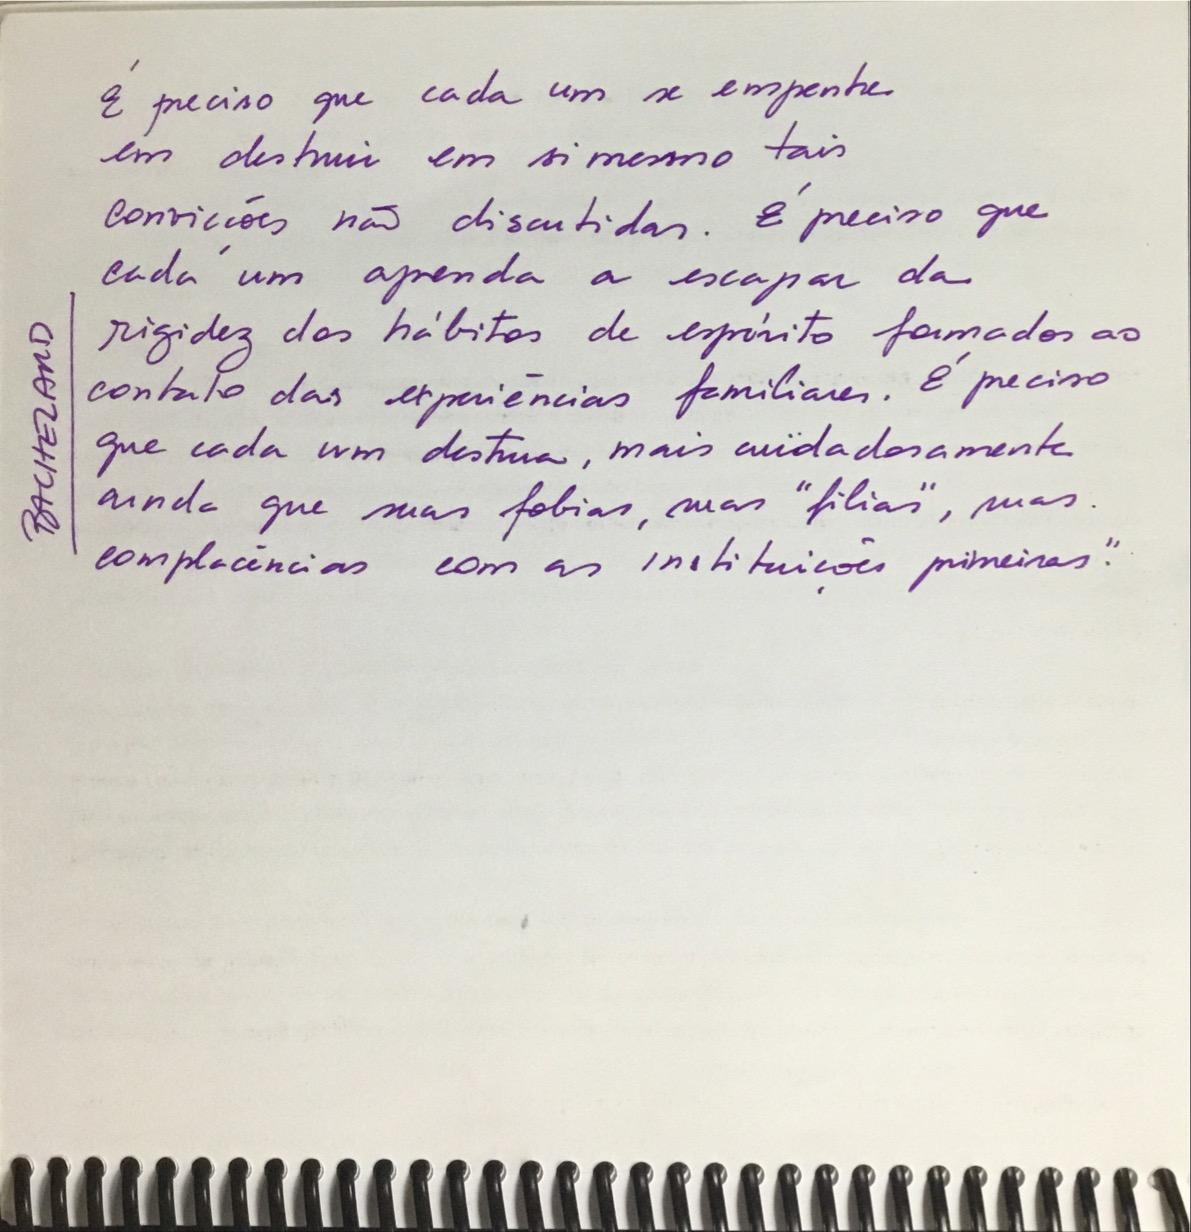 É preciso que cada um se empenhe
em destruir em si mesmo tais
convicções não discutidas. É preciso que
cada um aprenda a escapar da
rigidez dos hábitos de espírito formados ao
contato das experiências familiares. É preciso
que cada um destrua, mais cuidadosamente
ainda que suas fobias, suas "filias", suas
complacências com as instituições primeiras".
BACHELARD